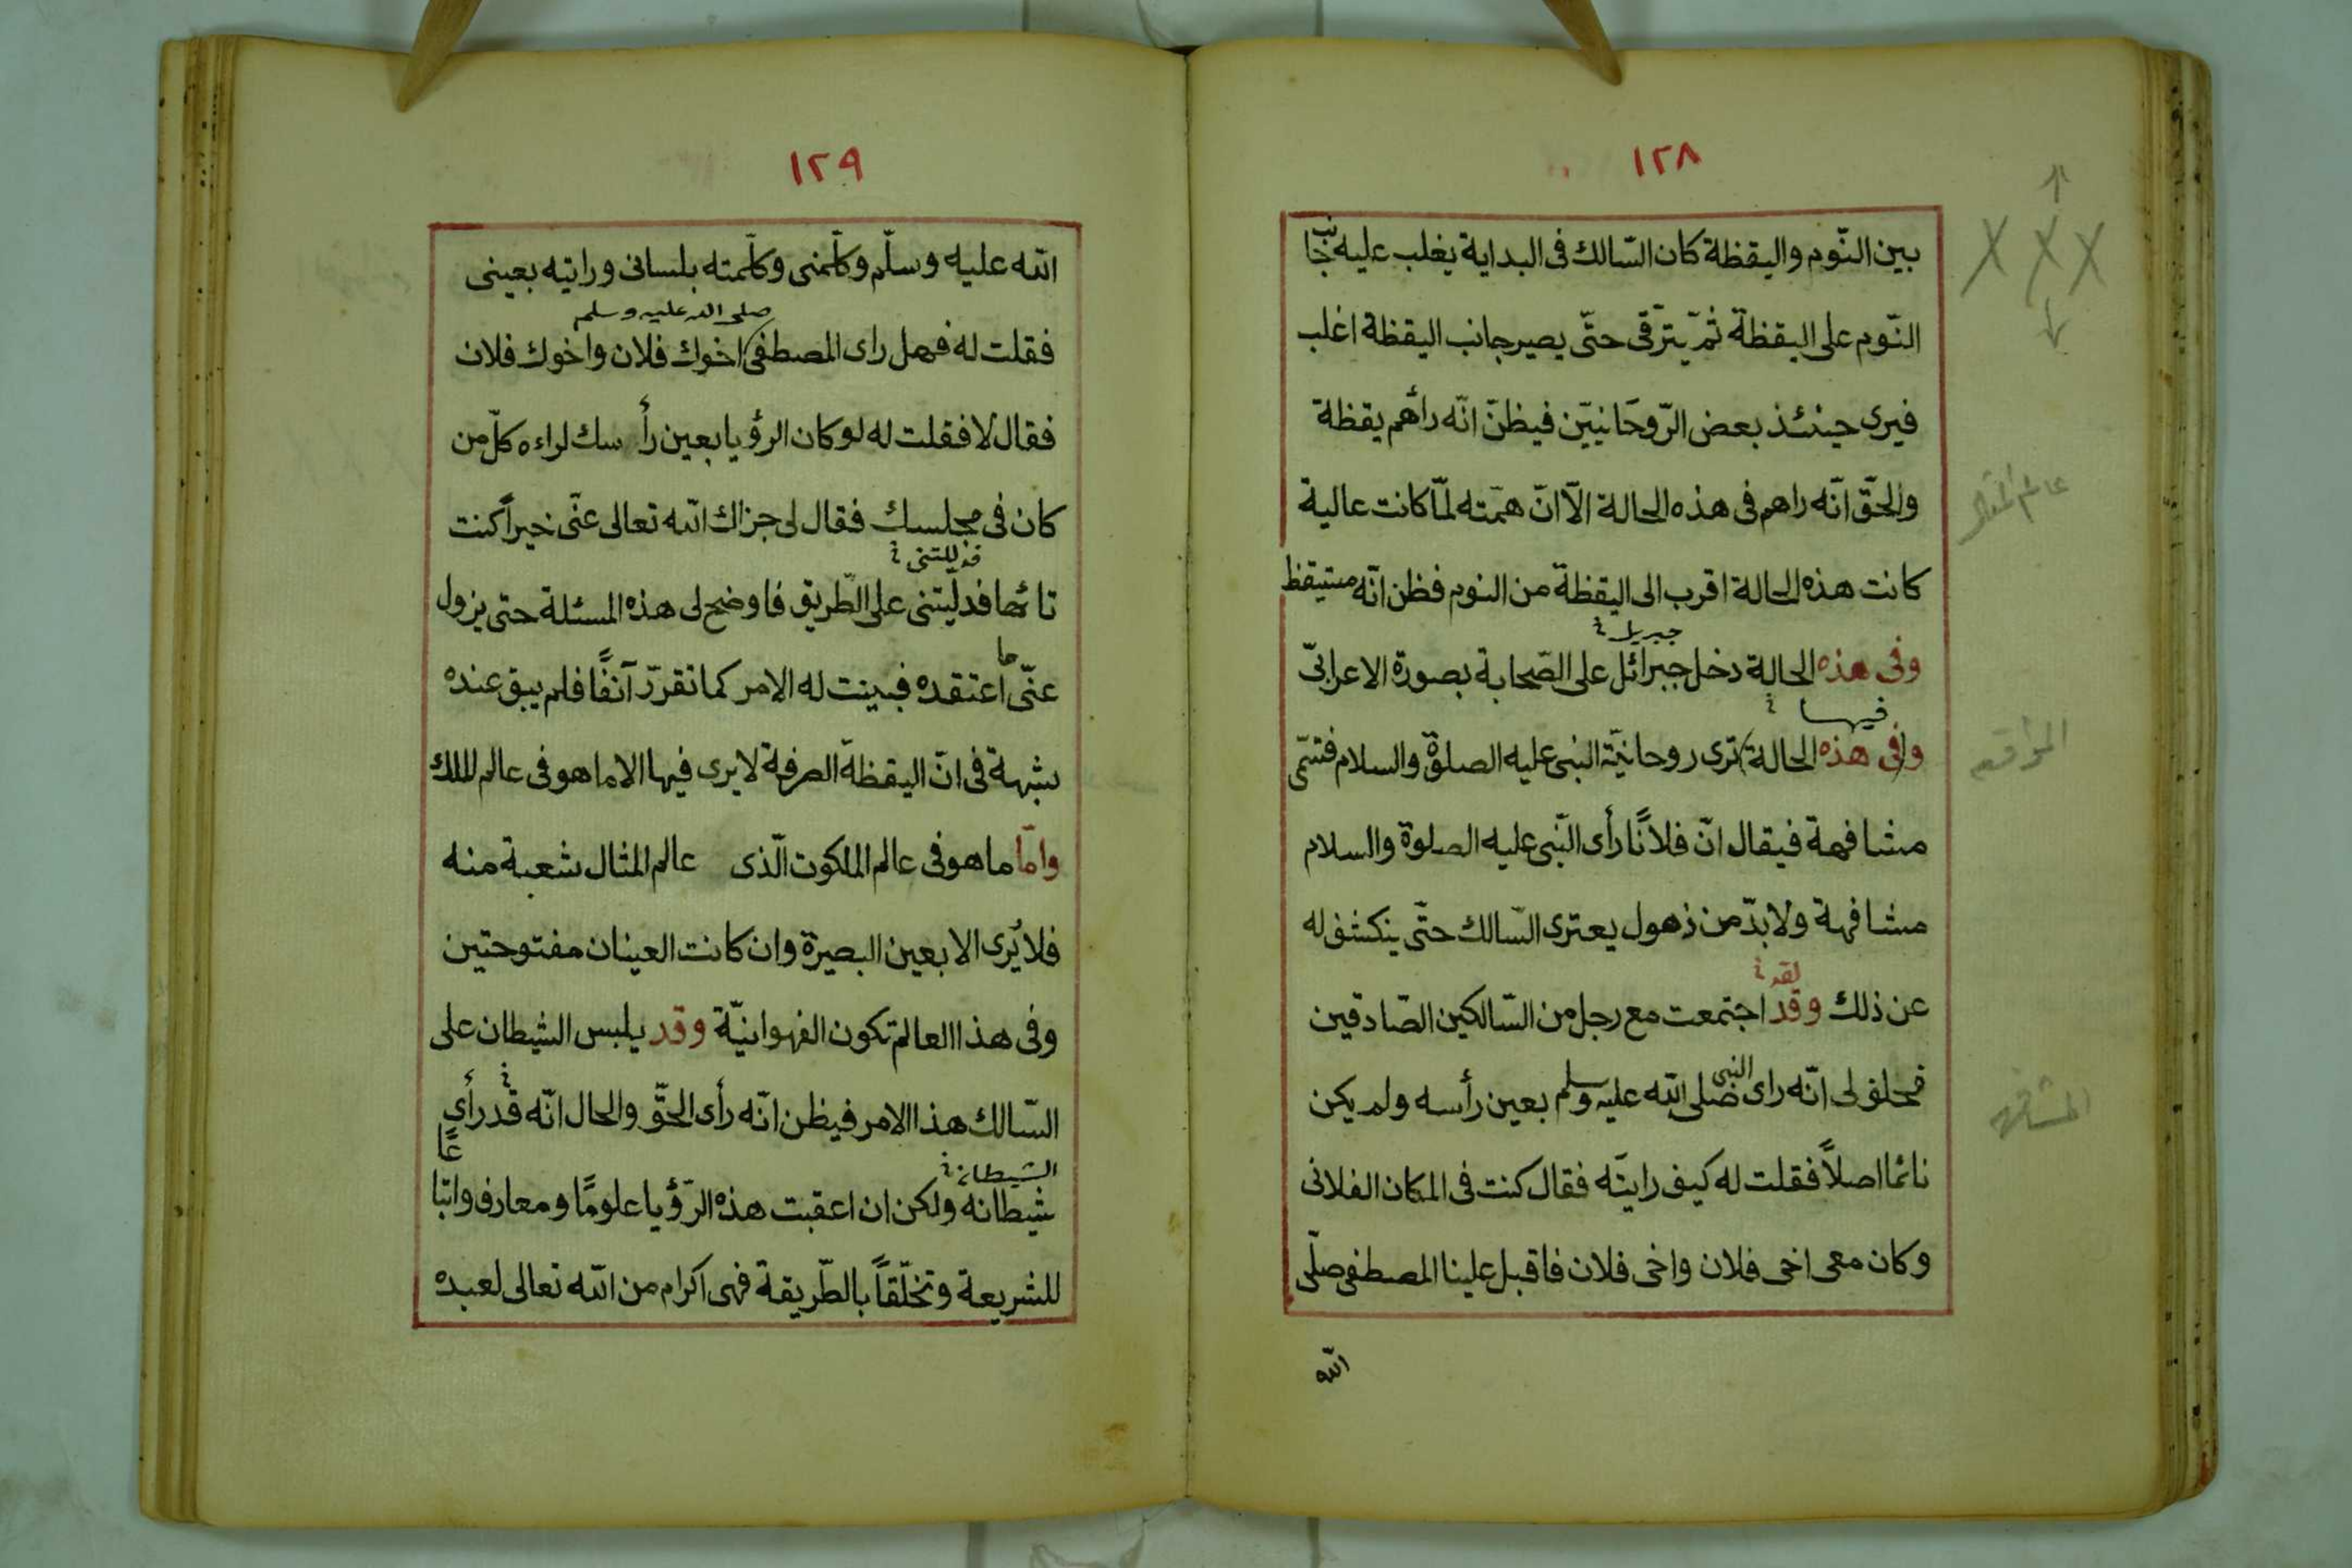 ١٢٨
بين النّوم واليقظة كان السّالك فى البداية يغلب عليه جانب
النّوم على اليقظة ثمّ يترّقى حتّى يصير جانب اليقظة اغلب
فيرى حينئذ بعض الرّوحَانيّين فيظنّ انّه رأهم يقظة
والحقّ انّه راهم فى هذه الحالة الّا انّ همّته لمّا كانت عالية
كانت هذه الحالة اقرب الى اليقظة من النوم فظن انّه مستيقظ
جبريل
وفى هذه الحالة دخل جبرائل على الصّحابة بصورة الاعرابىّ
فيها
وفى هذه الحالة ترى روحانيّة النبى عليه الصلوة والسلام فتسمّى
مشافهة فيقال انّ فلانًا رأى النّبى عليه الصلوة والسلام
مشافهة ولا بدّ من ذهول يعترى السّالك حتّى ينكشف له
لقد
عن ذلك وقد اجتمعت مع رجل من السّالكين الصّادقين
فحلف لى انّه راى النبى صلى الله عليه وسلم بعين رأسه ولم يكن
نائما اصلاً فقلت له كيف رايته فقال كنت فى المكان الفلانى
وكان معى اخى فلان واخى فلان فاقبل علينا المصطفى صلّى
الله
عالم
المشافهه
١٢٩
الله عليه وسلّم وكلّمنى وكلّمته بلسانى ورايته بعينى
صلى الله عليه وسلم
فقلت له فهل راى المصطفى اخوك فلان واخوك فلان
فقال لا فقلت له لو كان الرؤيا بعين رأسك لراءه كلّ من
كان فى مجلسك فقال لى جزاك الله تعالى عنّى خيراً كنت
فدللتنى
تائها فدليتنى على الطّريق فاوضح لى هذه المسئلة حتى يزول
ما
عنّى اعتقده فبينت له الامر كما تقرّر آنفًا فلم يبق عنده
شبهة فى انّ اليقظة الصرفة لا يرى فيها الا ما هو فى عالم الملك
وامّا ما هو فى عالم الملكوت الّذى عالم المثال شعبة منه
فلا يُرى الا بعين البصيرة وان كانت العينان مفتوحتين
وفى هذا العالم تكون الفهوانيّة وقد يلبس الشيطان على
السّالك هذا الامر فيظن انّه رأى الحقّ والحال انّه قد رأى
الشيطان
شيطانه ولكن ان اعقبت هذه الرّؤيا علومًا ومعارف واتباعًا
للشريعة وتخلّقاً بالطّريقة فهى اكرام من الله تعالى لعبده